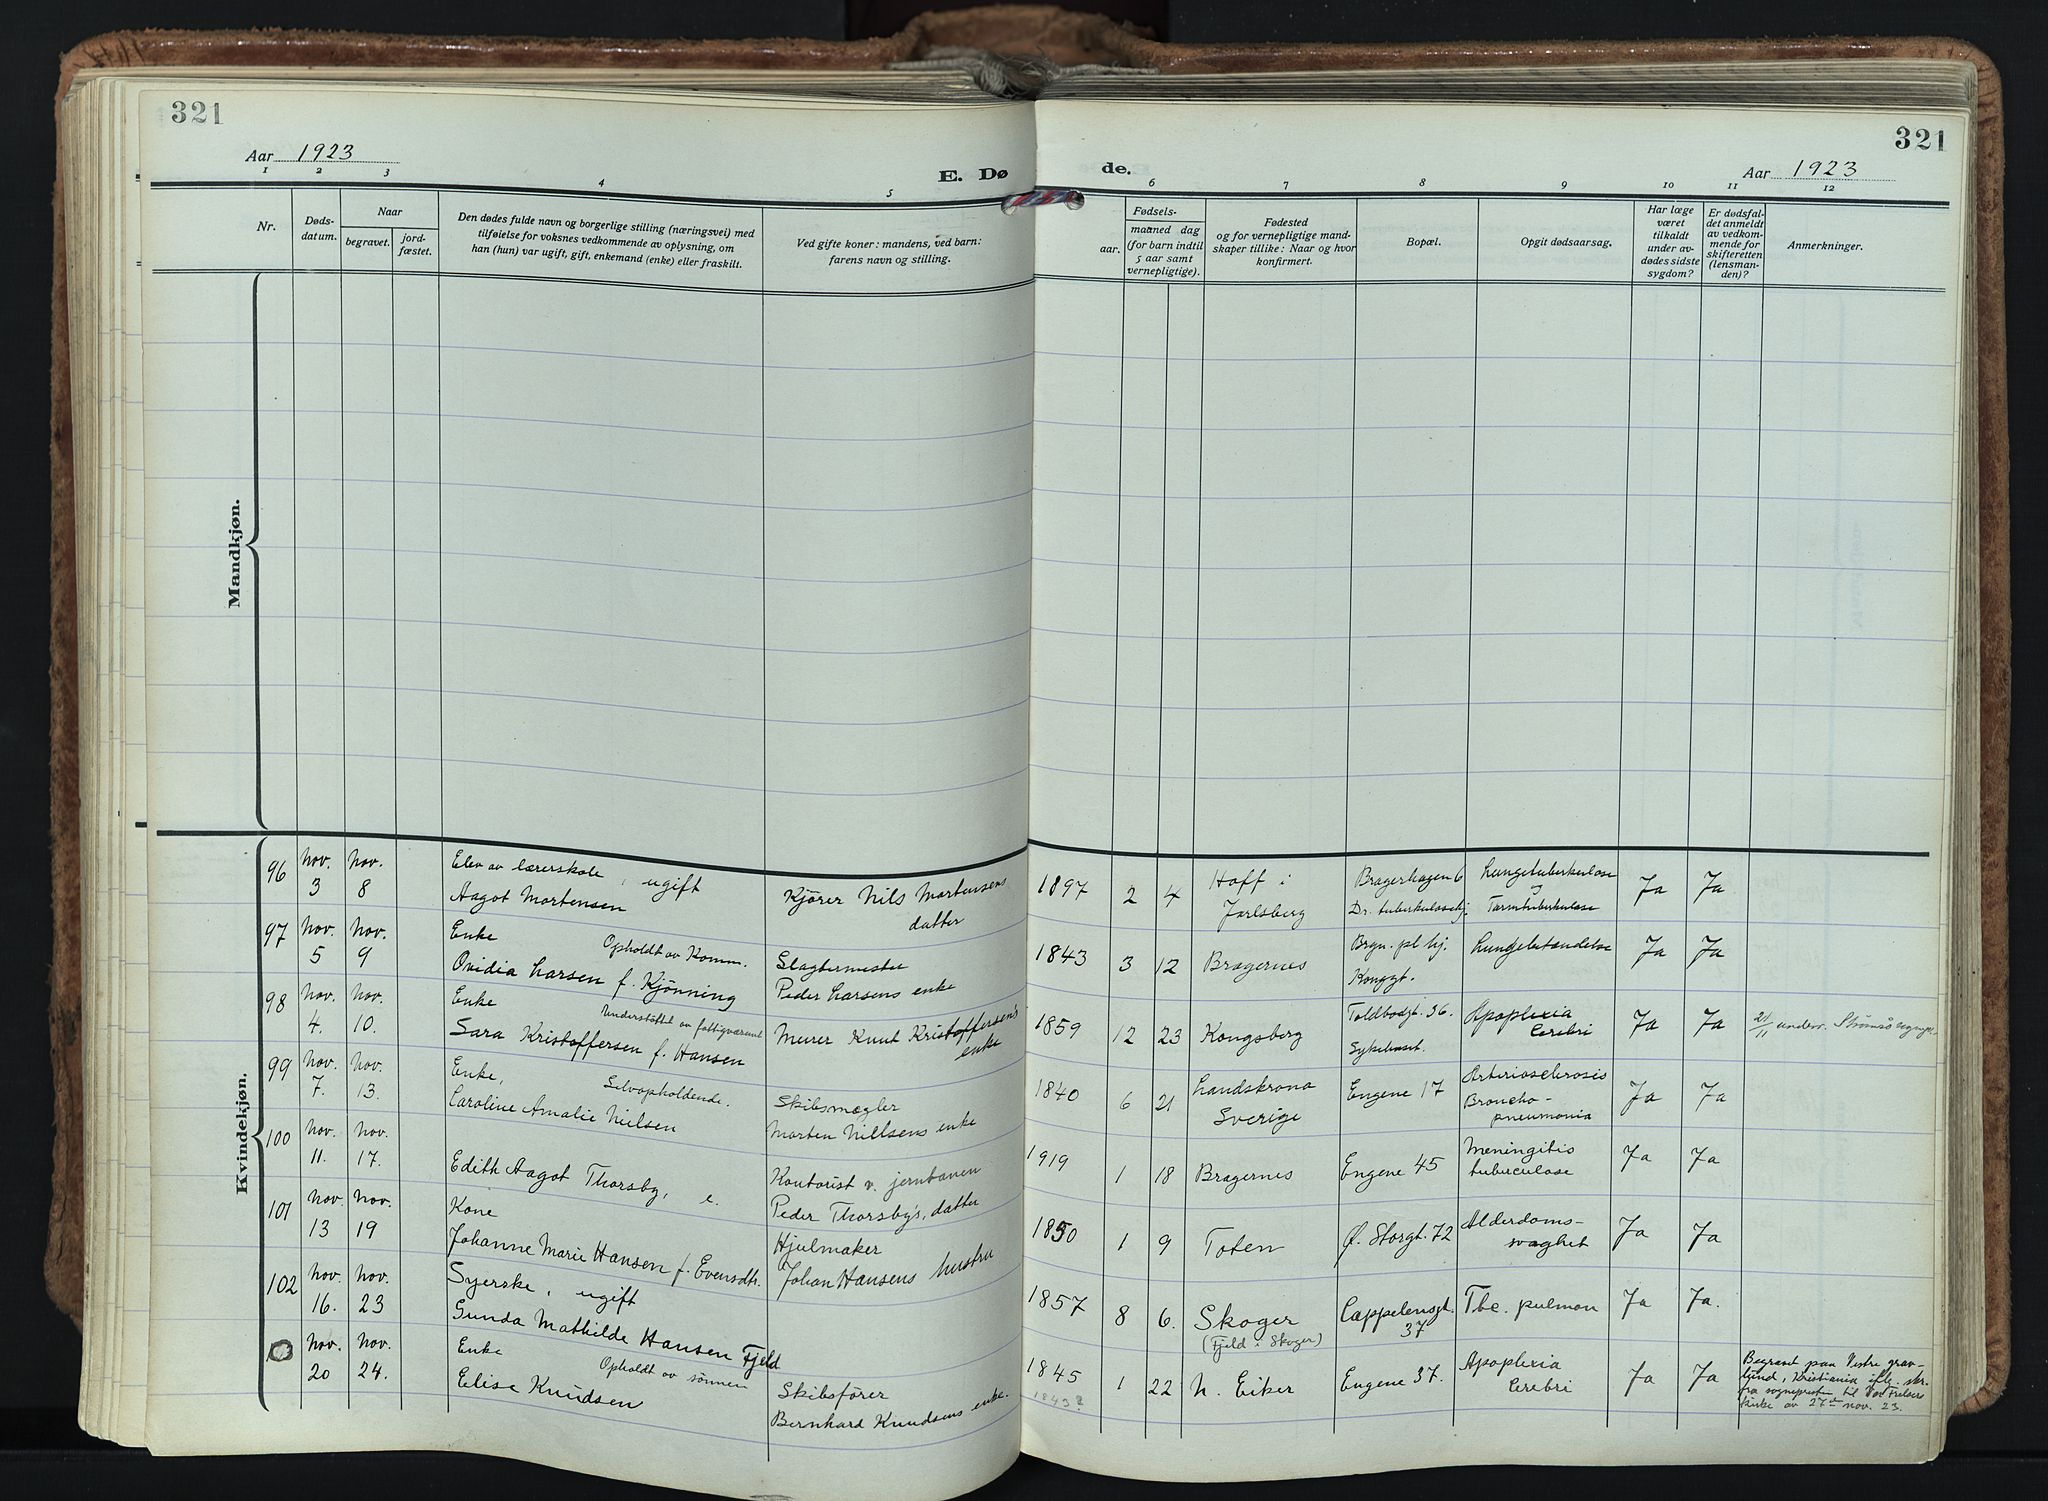 321
321
Aar 1923
E. Dø
de.
Aar 1923
1 2 3 4 5 6 7 8 9 10 11 12
Nr.
Døds-
datum.
Naar
begravet.
jord-
fæstet.
Den dødes fulde navn og borgerlige stilling (næringsvei) med
tilføielse for voksnes vedkommende av oplysning, om
han (hun) var ugift, gift, enkemand (enke) eller fraskilt.
Ved gifte koner: mandens, ved barn:
farens navn og stilling.
Fødsels-
aar.
maaned dag
(for barn indtil
5 aar samt
vernepligtige).
Fødested
og for vernepligtige mand-
skaper tillike: Naar og hvor
konfirmert.
Bopæl.
Opgit dødsaarsag.
Har læge
været
tilkaldt
under av-
dødes sidste
sygdom?
Er dødsfal-
det anmeldt
av vedkom-
mende for
skifteretten
(lensman-
den)?
Anmerkninger.
Mandkjøn.
Kvindekjøn.
96
Nov. 3
Nov. 8
Elev av lærerskole, ugift
Aagot Mortensen
Kjører Nils Mortensens
datter
1897 2 4
Hoff i
Jarlsberg
Bragerhagen 6
Dr. tuberkulosehj.
Lungetuberkulose
og
Tarmtuberkulose
Ja Ja
97
Nov. 5
Nov. 9
Enke
Opholdt av Komm.
Ovidia Larsen f. Kjönning
Slagtermester
Peder Larsens enke
1843 3 12
Bragernes
Brgn. pl hj.
Kongsgt.
Lungebetændelse
Ja Ja
98
Nov. 4.
Nov. 10.
Enke
Understöttet av fattigvæsenet
Sara Kristoffersen f. Hansen
Murer Knut Kristoffersen's
enke
1859 12 23
Kongsberg
Toldbodgt. 36.
Sykehuset.
Apoplexia
Cerebri
Ja Ja
21/11 underr. Strømsø sognepr.
99
Nov. 7.
Nov. 13.
Enke,
Selvopholdende.
Caroline Amalie Nielsen
Skibsmægler
Morten Nillsens enke
1840 6 21
Landskrona
Sverige
Engene 17
Arteriosclerosis
Broncho-
pneumonia
Ja Ja
100
Nov. 11.
Nov. 17.
Edith Aagot Thorsby, e.
Kontorist v. jernbanen
Peder Thorsby's, datter
1919 1 18
Bragernes
Engene 45
Meningitis
tuberculose
Ja Ja
101
Nov. 13
Nov. 19
Kone
Johanne Marie Hansen f. Evensdtr.
Hjulmaker
Johan Hansens hustru
1850 1 9
Toten
Ø. Storgt. 72
Alderdoms-
svaghet
Ja Ja
102
Nov. 16.
Nov. 23
Syerske, ugift
Gunda Mathilde Hansen Fjeld
1857 8 6.
Skoger
(Fjeld i Skoger)
Cappelensgt.
37
Tbc. pulmon
Ja Ja.
Nov. 20
Nov. 24.
Enke
Opholdt av sönnen
Elise Knudsen
Skibsförer
Bernhard Knudsens enke.
1845 1 22
1843?
N. Eiker
Engene 37.
Apoplexia
Cerebri
Ja Ja
Begravet paa Vestre grav-
lund, Kristiania iflg. skr.
fra sognepresten til Vor Frelsers
kirke av 27de nov. 23.